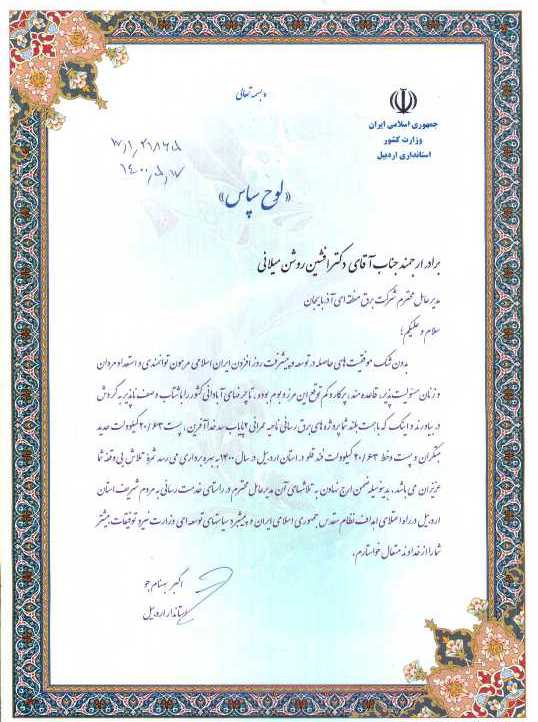 «بسمه تعالی
جمهوری اسلامی ایران
وزارت کشور
استانداری اردبیل
۱۴۰۰٫۵٫۱۷
«لوح سپاس»
برادر ارجمند جناب آقای دکتر افشین روشن میلانی
مدیرعامل محترم شرکت برق منطقه ای آذربایجان
سلام و علیکم؛
بدون شک موفقیت های حاصله در توسعه و پیشرفت روزافزون ایران اسلامی مرهون توانمندی و استعداد مردان
و زنان مسئولیت پذیر، قاعده مند، پرکار و کم توقع این مرز و بوم بوده و، تا چرخهای آبادانی کشور را با شتاب وصف ناپذیر به گردش
در بیاورند و اینک که با همت بلند شما پروژه های برق رسانی ناحیه عمرانی ۲ پایاب سد خداآفرین، پست ۲۰/۶۳ کیلوولت جدید
مشگران و پست و خط ۲۰/۶۳ کیلوولت فتح در استان اردبیل در سال ۱۴۰۰ به بهره برداری می رسد ثمرۀ تلاش بی وقفه شما
عزیزان می باشد، بدینوسیله ضمن ارج نهادن به تلاشهای آن مدیرعامل محترم در راستای خدمت رسانی به مردم شریف استان
اردبیل در راه اعتلای اهداف نظام مقدس جمهوری اسلامی ایران و پیشبرد سیاستهای توسعه ای وزارت نیرو توفیقات بیشتر
شما را از خداوند متعال خواستارم.
اکبر بهنام جو
استاندار اردبیل